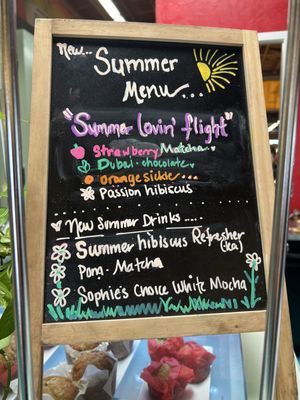 New...
Summer
Menu...
"Summer lovin' flight"
Strawberry Matcha
Dubai-chocolate
orange sickle...
Passion hibiscus
New Summer Drinks.....
Summer hibiscus Refresher
(tea)
Pang-Matcha
Sophie's Choice White Mocha